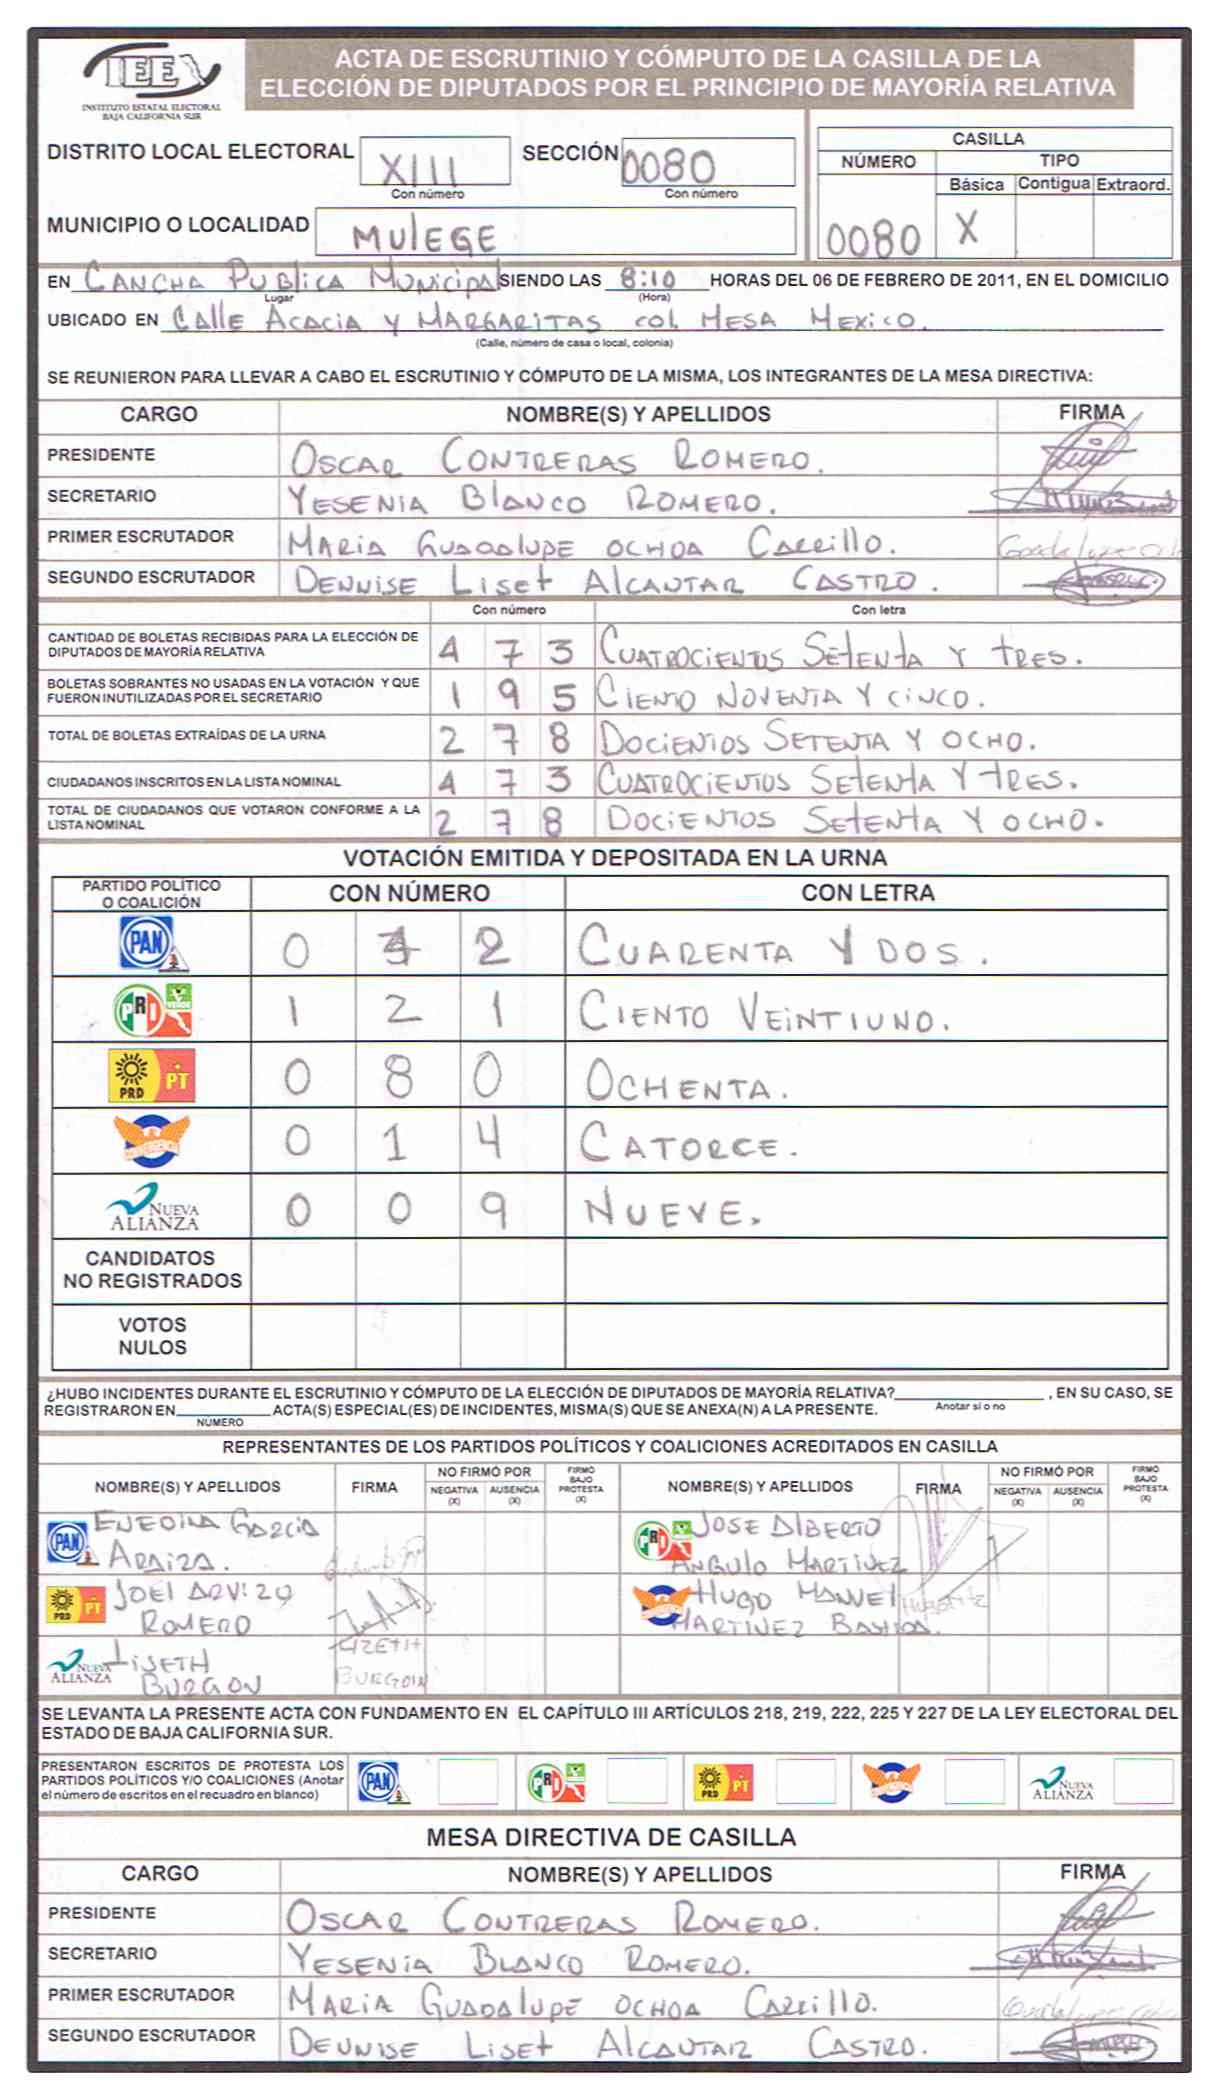 IEE
INSTITUTO ESTATAL ELECTORAL
BAJA CALIFORNIA SUR
ACTA DE ESCRUTINIO Y CÓMPUTO DE LA CASILLA DE LA
ELECCIÓN DE DIPUTADOS POR EL PRINCIPIO DE MAYORÍA RELATIVA
DISTRITO LOCAL ELECTORAL XIII SECCIÓN 0080
Con número Con número
MUNICIPIO O LOCALIDAD MULEGE
CASILLA
NÚMERO TIPO
Básica Contigua Extraord.
0080 X
EN CANCHA PUBLICA MUNICIPAL SIENDO LAS 8:10 HORAS DEL 06 DE FEBRERO DE 2011, EN EL DOMICILIO
Lugar (Hora)
UBICADO EN CALLE ACACIA Y MARGARITAS COL. MESA MEXICO.
(Calle, número de casa o local, colonia)
SE REUNIERON PARA LLEVAR A CABO EL ESCRUTINIO Y CÓMPUTO DE LA MISMA, LOS INTEGRANTES DE LA MESA DIRECTIVA:
CARGO NOMBRE(S) Y APELLIDOS FIRMA
PRESIDENTE OSCAR CONTRERAS ROMERO.
SECRETARIO YESENIA BLANCO ROMERO.
PRIMER ESCRUTADOR MARIA GUADALUPE OCHOA CARRILLO.
SEGUNDO ESCRUTADOR DENNISE LISET ALCANTAR CASTRO.
Con número Con letra
CANTIDAD DE BOLETAS RECIBIDAS PARA LA ELECCIÓN DE
DIPUTADOS DE MAYORÍA RELATIVA 4 7 3 CUATROCIENTOS SETENTA Y TRES.
BOLETAS SOBRANTES NO USADAS EN LA VOTACIÓN Y QUE
FUERON INUTILIZADAS POR EL SECRETARIO 1 9 5 CIENTO NOVENTA Y CINCO.
TOTAL DE BOLETAS EXTRAÍDAS DE LA URNA 2 7 8 DOCIENTOS SETENTA Y OCHO.
CIUDADANOS INSCRITOS EN LA LISTA NOMINAL 4 7 3 CUATROCIENTOS SETENTA Y TRES.
TOTAL DE CIUDADANOS QUE VOTARON CONFORME A LA
LISTA NOMINAL 2 7 8 DOCIENTOS SETENTA Y OCHO.
VOTACIÓN EMITIDA Y DEPOSITADA EN LA URNA
PARTIDO POLÍTICO
O COALICIÓN CON NÚMERO CON LETRA
PAN 0 4 2 CUARENTA Y DOS.
PRI VERDE 1 2 1 CIENTO VEINTIUNO.
PRD PT 0 8 0 OCHENTA.
CONVERGENCIA 0 1 4 CATORCE.
NUEVA ALIANZA 0 0 9 NUEVE.
CANDIDATOS
NO REGISTRADOS
VOTOS
NULOS
¿HUBO INCIDENTES DURANTE EL ESCRUTINIO Y CÓMPUTO DE LA ELECCIÓN DE DIPUTADOS DE MAYORÍA RELATIVA? , EN SU CASO, SE
Anotar sí o no
REGISTRARON EN ACTA(S) ESPECIAL(ES) DE INCIDENTES, MISMA(S) QUE SE ANEXA(N) A LA PRESENTE.
NÚMERO
REPRESENTANTES DE LOS PARTIDOS POLÍTICOS Y COALICIONES ACREDITADOS EN CASILLA
NOMBRE(S) Y APELLIDOS FIRMA NO FIRMÓ POR NEGATIVA (X) AUSENCIA (X) FIRMÓ BAJO PROTESTA (X) NOMBRE(S) Y APELLIDOS FIRMA NO FIRMÓ POR NEGATIVA (X) AUSENCIA (X) FIRMÓ BAJO PROTESTA (X)
PAN ENEDINA GARCIA
ARAIZA.
PRI JOSE ALBERTO
ANGULO MARTINEZ
PRD PT JOEL ARVIZO
ROMERO
HUGO MANUEL
MARTINEZ
NUEVA ALIANZA LISETH
BURGOIN
LIZETH
BURGOIN
SE LEVANTA LA PRESENTE ACTA CON FUNDAMENTO EN EL CAPÍTULO III ARTÍCULOS 218, 219, 222, 225 Y 227 DE LA LEY ELECTORAL DEL
ESTADO DE BAJA CALIFORNIA SUR.
PRESENTARON ESCRITOS DE PROTESTA LOS
PARTIDOS POLÍTICOS Y/O COALICIONES (Anotar
el número de escritos en el recuadro en blanco) PAN PRI PRD PT NUEVA ALIANZA
MESA DIRECTIVA DE CASILLA
CARGO NOMBRE(S) Y APELLIDOS FIRMA
PRESIDENTE OSCAR CONTRERAS ROMERO.
SECRETARIO YESENIA BLANCO ROMERO.
PRIMER ESCRUTADOR MARIA GUADALUPE OCHOA CARRILLO.
SEGUNDO ESCRUTADOR DENNISE LISET ALCANTAR CASTRO.